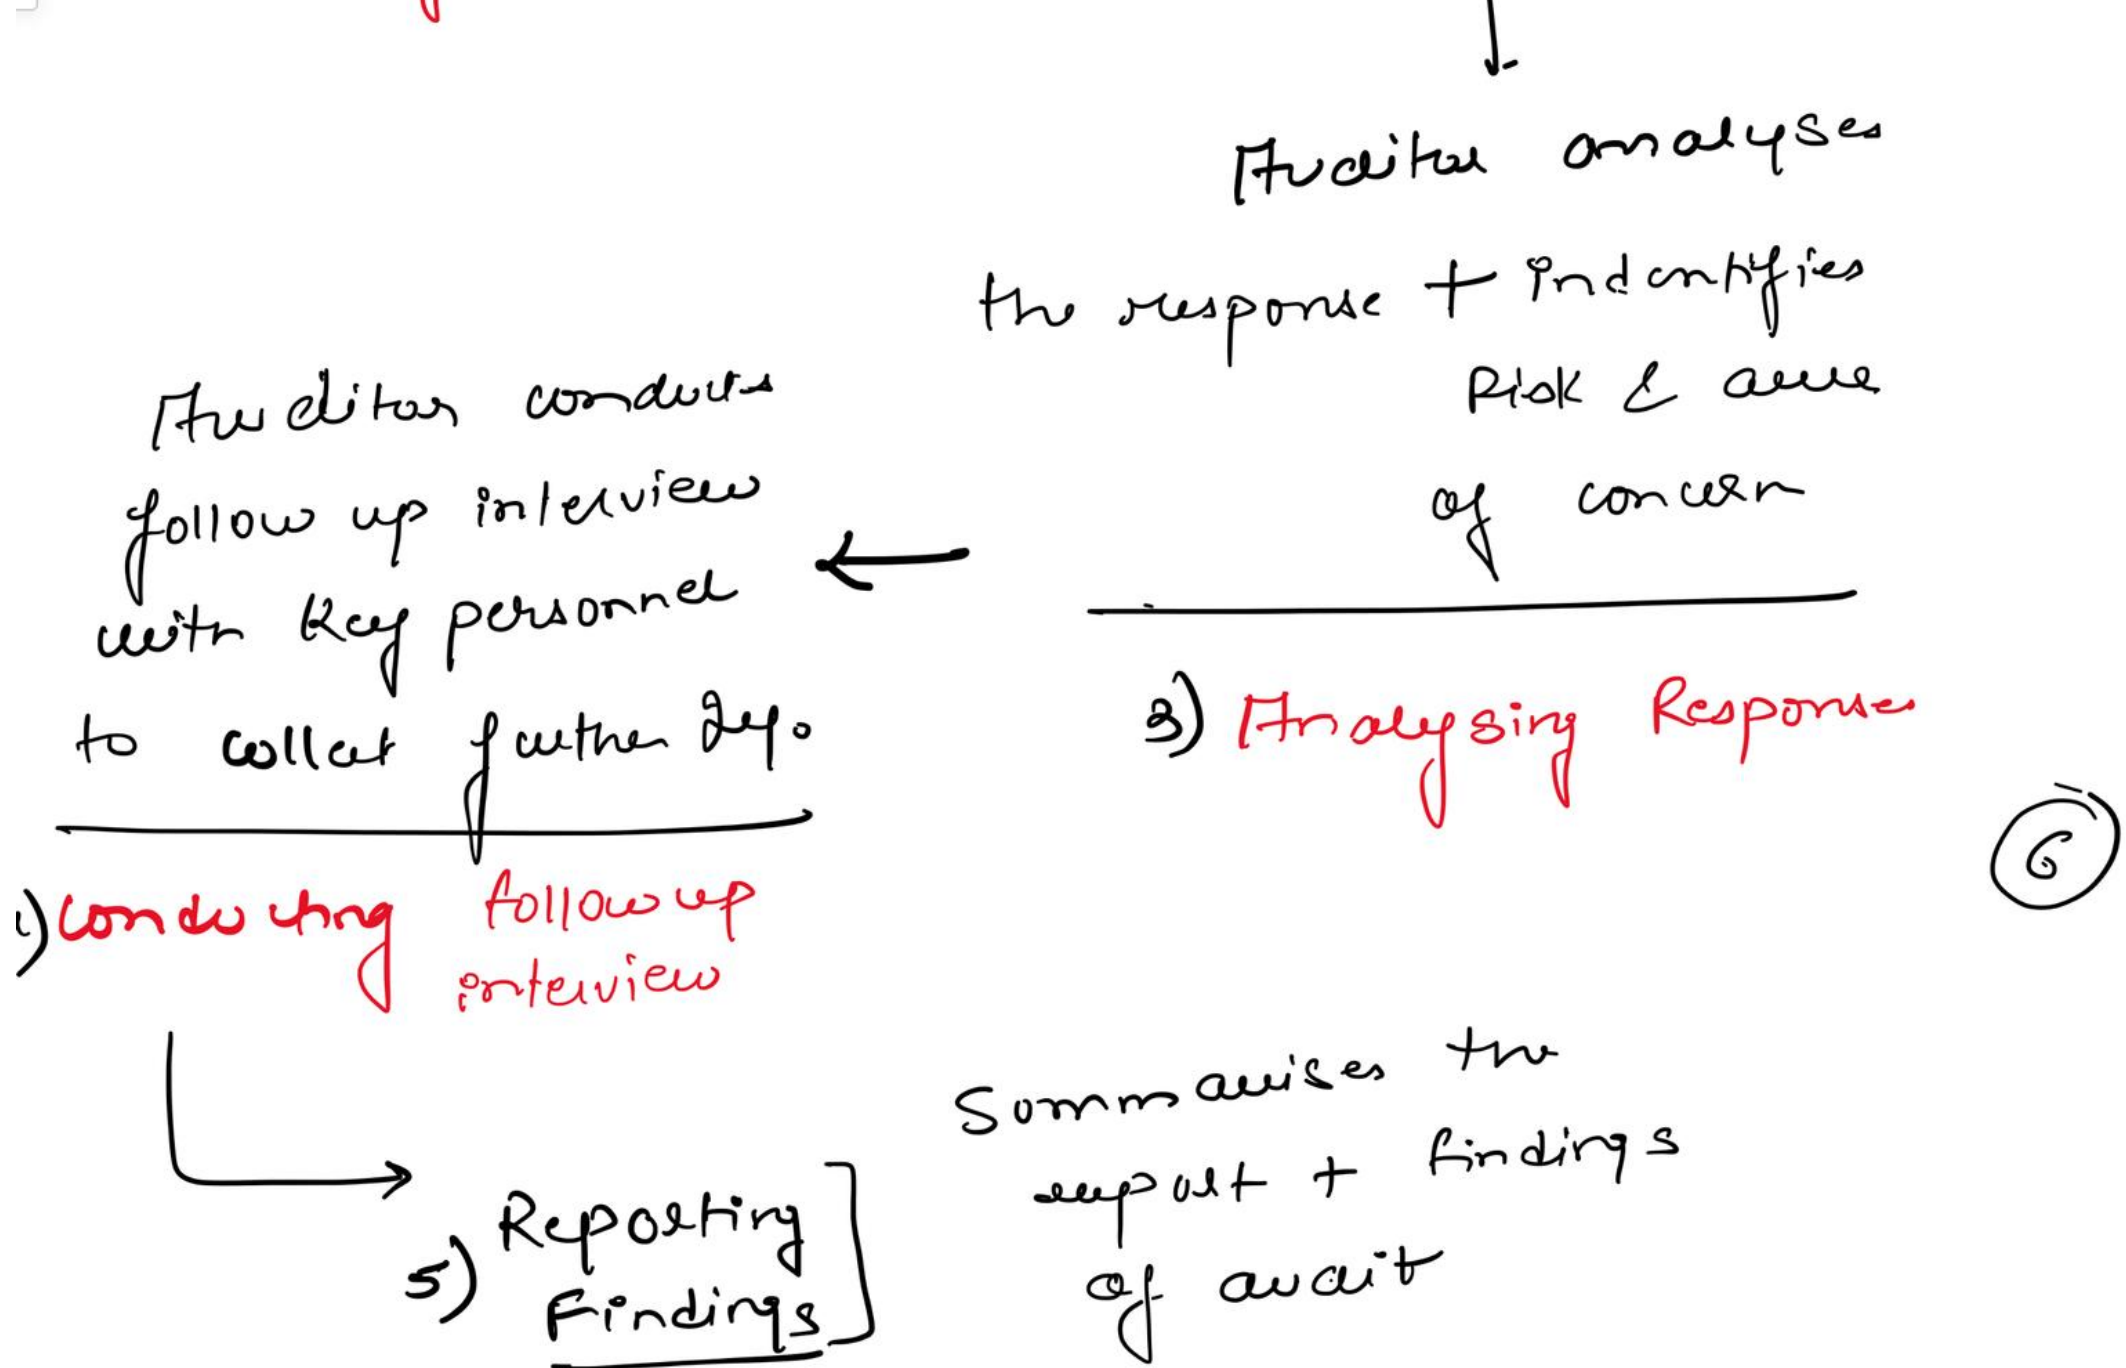 Auditor analyses
the response + indentifies
Risk & area
of concern
3) Analysing Responses
Auditor conducts
follow up interview
with key personnel
to collect further
Conducting follow up
interview
5) Reporting
Findings
Summarises the
report + findings
of audit
6